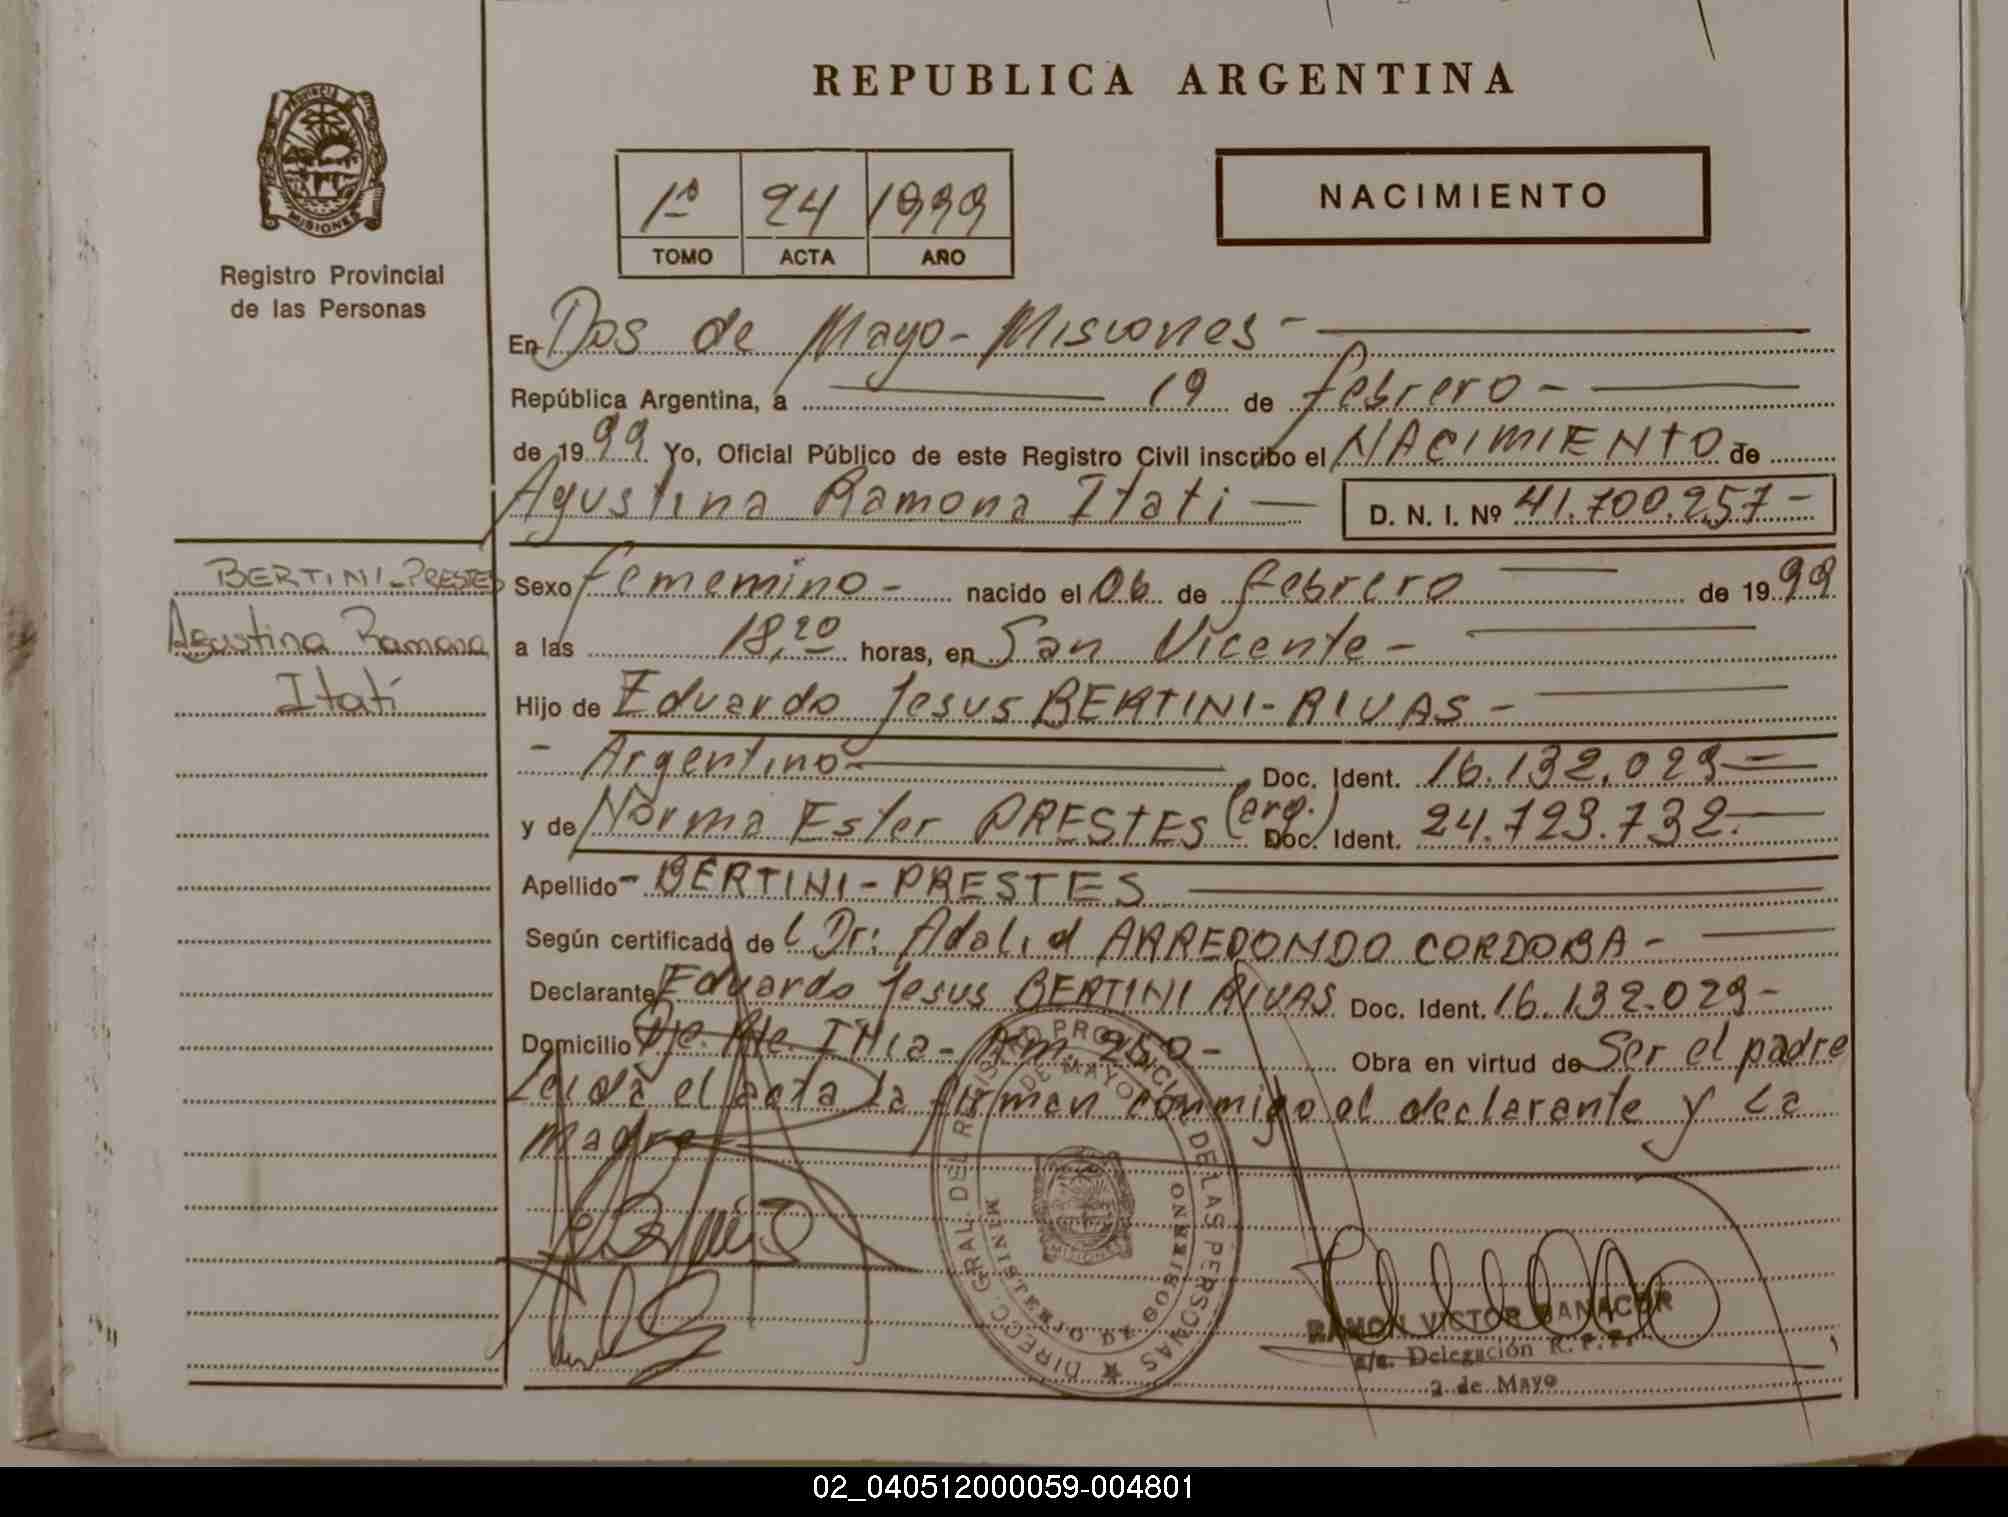 REPUBLICA ARGENTINA
PROVINCIA DE
MISIONES
Registro Provincial
de las Personas
1º 24 1999
TOMO ACTA AÑO
NACIMIENTO
En Dos de Mayo - Misiones -
República Argentina, a 19 de febrero -
de 1999 Yo, Oficial Público de este Registro Civil inscribo el NACIMIENTO de
Agustina Ramona Itati — D. N. I. Nº 41.700.257 -
BERTINI - PRESTES
Agustina Ramona
Itatí
Sexo fememino - nacido el 06 de febrero de 1999
a las 18,20 horas, en San Vicente -
Hijo de Eduardo Jesus BERTINI - RIVAS -
- Argentino - Doc. Ident. 16.132.029 -
y de Norma Ester PRESTES (arg.) Doc. Ident. 24.723.732. -
Apellido - BERTINI - PRESTES
Según certificado de l Dr: Adalid ARREDONDO CORDOBA -
Declarante Eduardo Jesus BERTINI RIVAS Doc. Ident. 16.132.029 -
Domicilio Illia - Obra en virtud de Ser el padre
Leida el acta la firman conmigo el declarante y la
madre -
DIRECC. GRAL. DEL REGISTRO PROVINCIAL DE LAS PERSONAS
2 DE MAYO
MINISTERIO DE GOBIERNO
MISIONES
RAMON VICTOR
a/c. Delegación R. P. P.
2 de Mayo
02_040512000059-004801